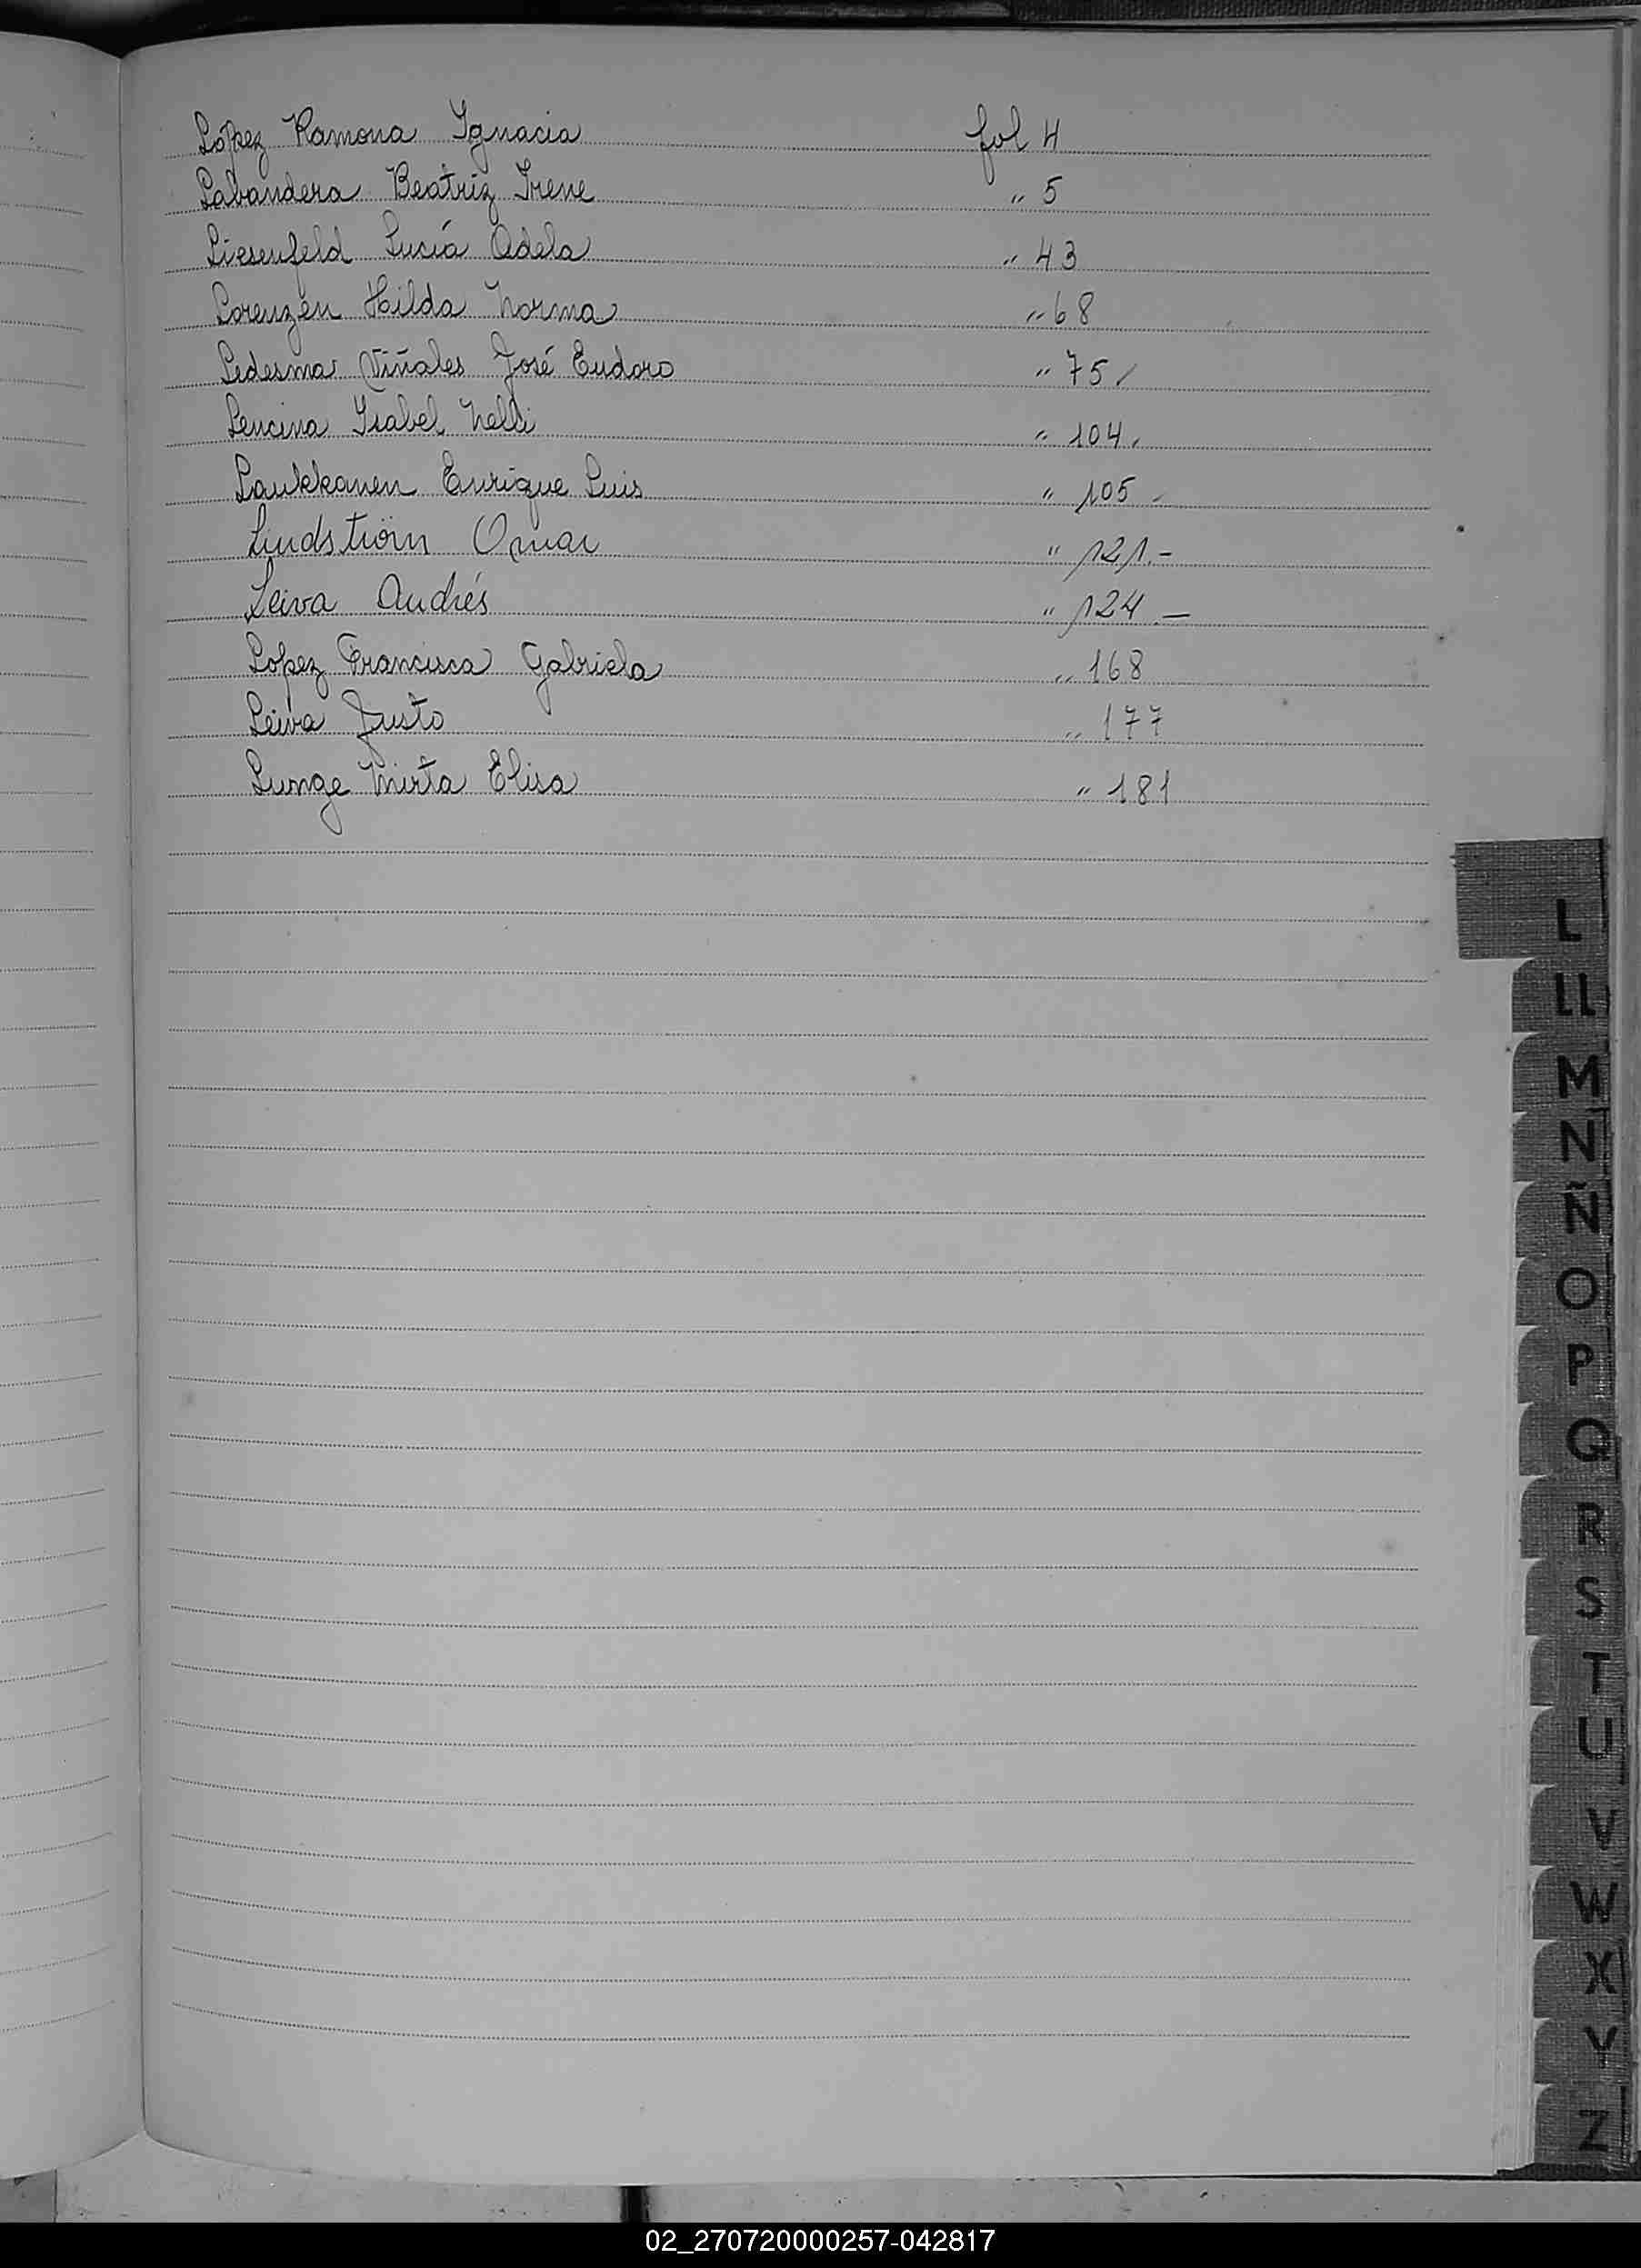 López Ramona Ignacia fol 4
Labandera Beatriz Irene " 5
Liesenfeld Lucía Adela " 43
Lorenzen Hilda Norma " 68
Ledesma Viñales José Eudoro " 75
Lencina Isabel Nelli " 104.
Laukkanen Enrique Luis " 105 -
Lindström Omar " 121.-
Leiva Andrés " 124.-
Lopez Francisca Gabriela " 168
Leiva Justo " 177
Lunge Mirta Elisa " 181
L
LL
M
N
Ñ
O
P
Q
R
S
T
U
V
W
X
Y
Z
02_270720000257-042817